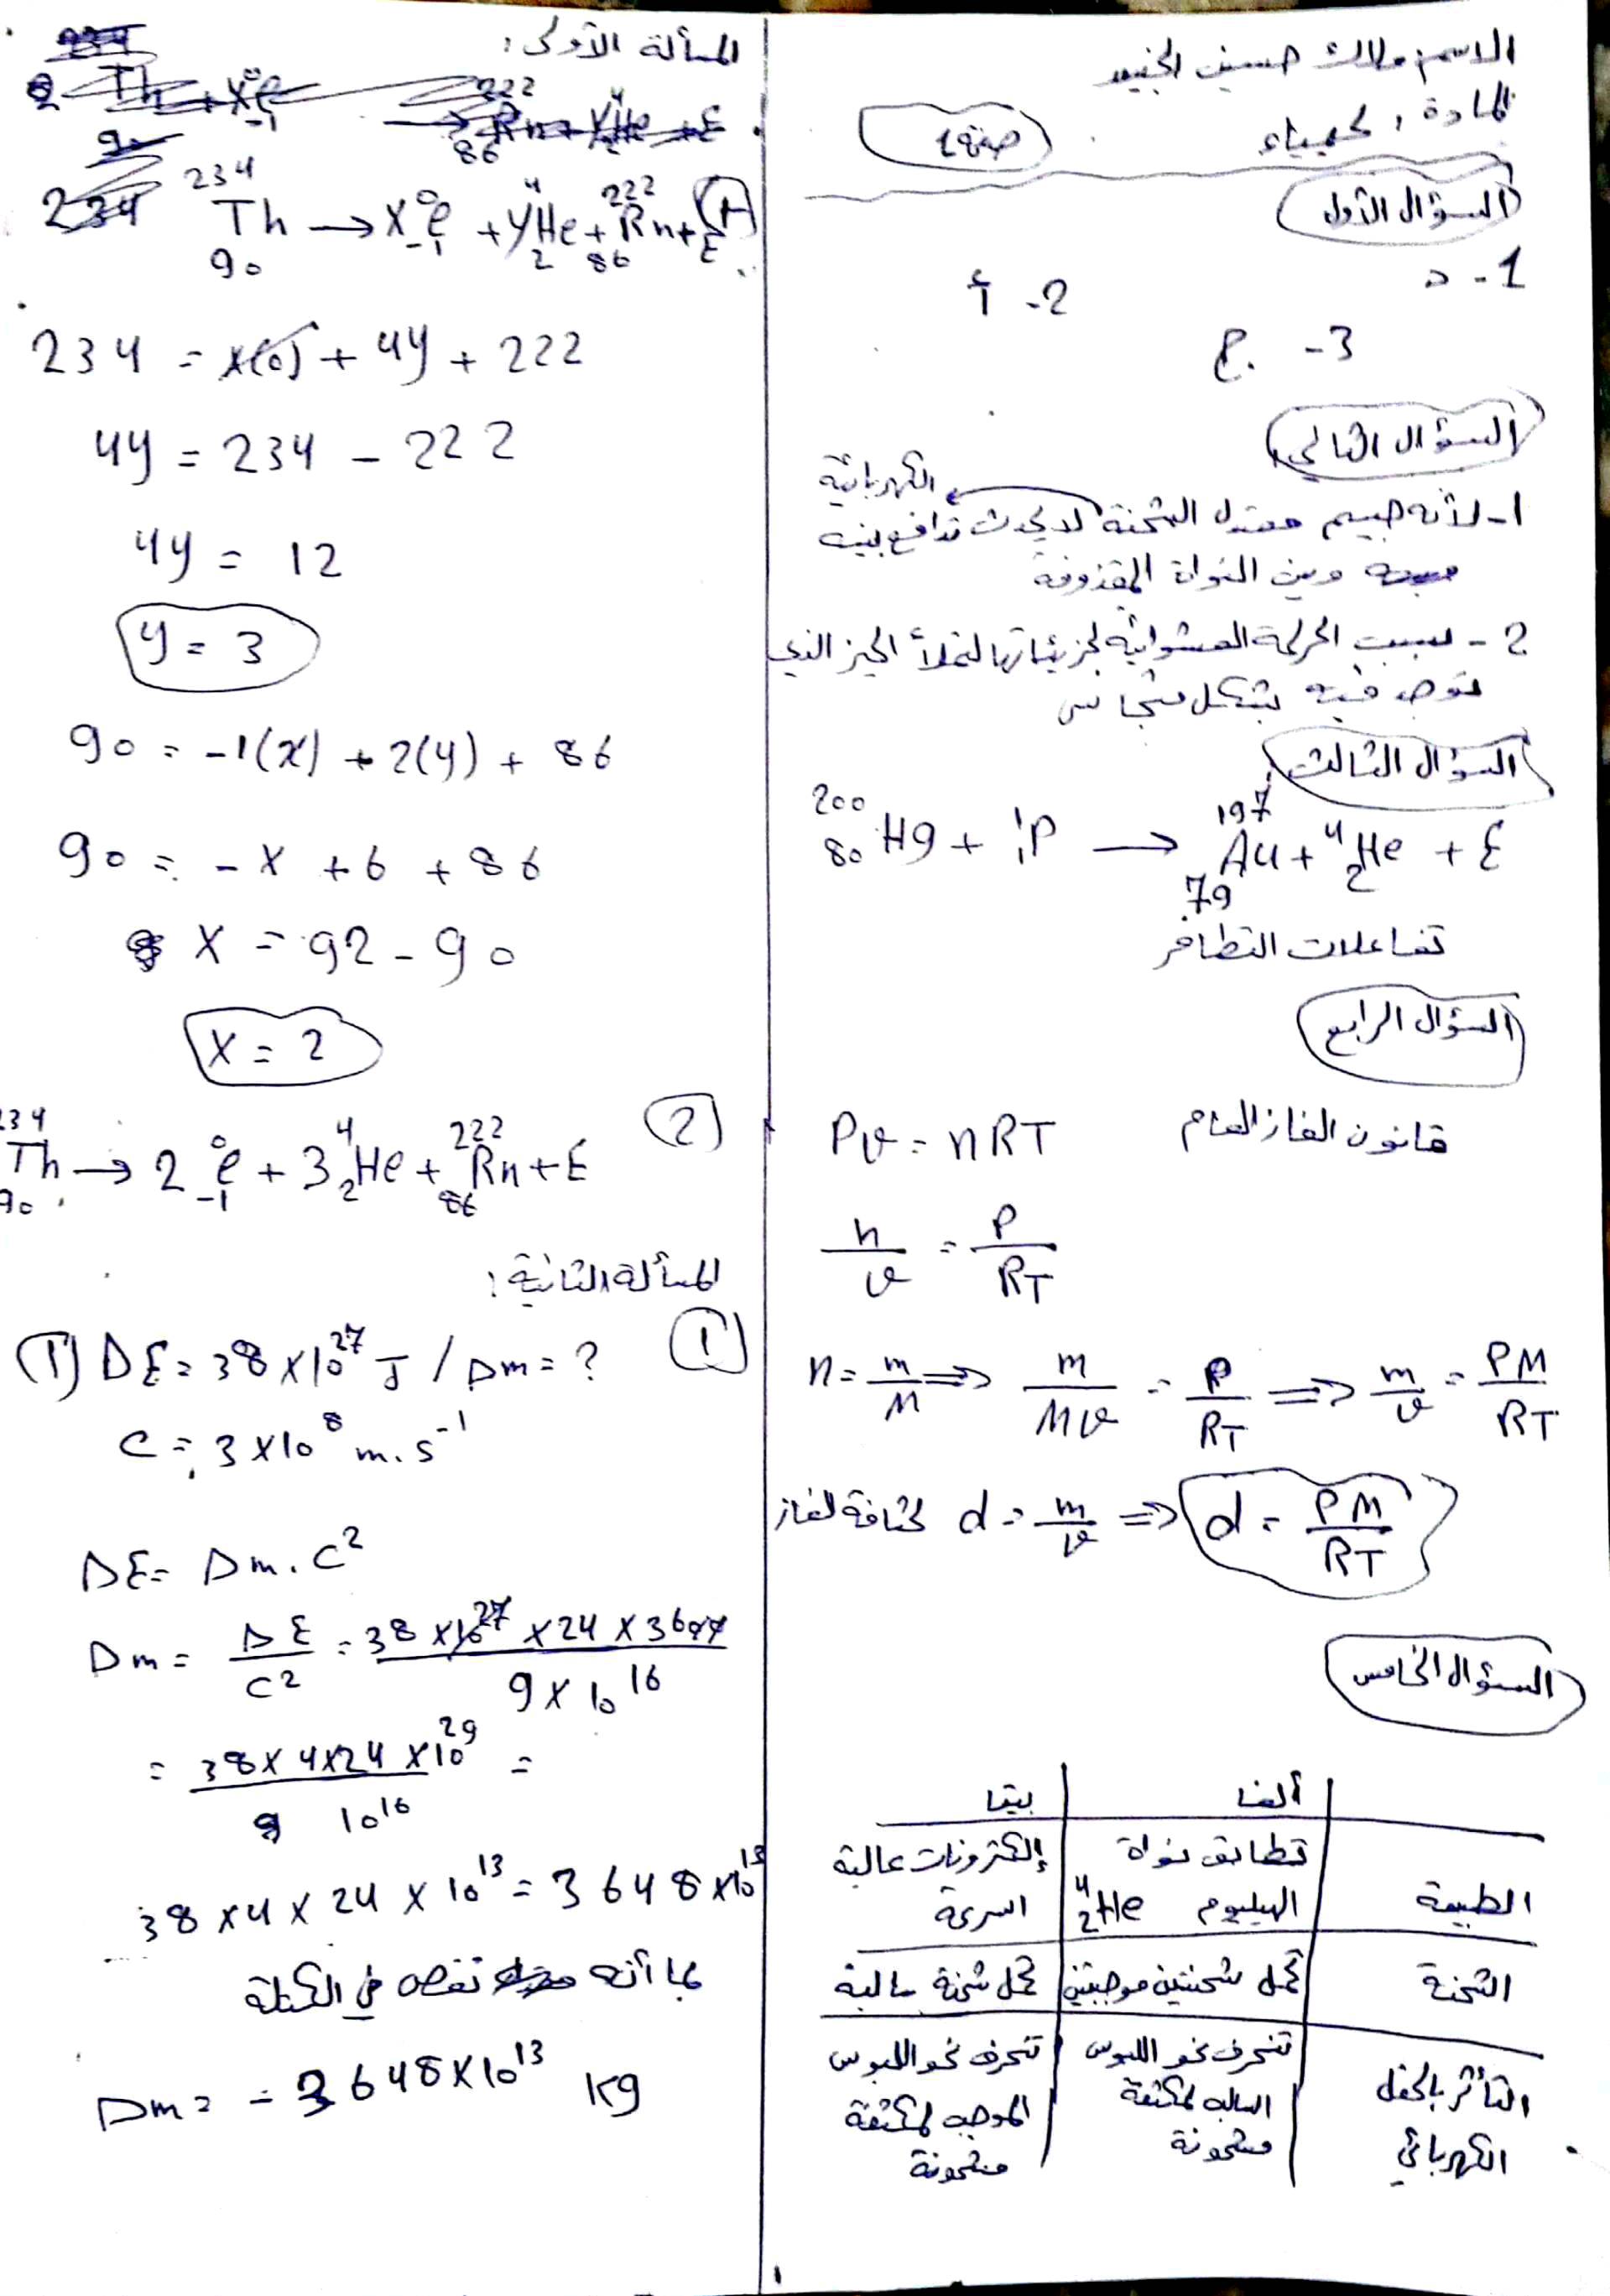 الاسم: ملاك حسين الجنيد
المادة: كيمياء
صفحة 1
السؤال الأول
1- د
2- أ
3- ج
السؤال الثاني
1- لأنه جسيم معتدل الشحنة الكهربائية لا يحدث تدافع بينه
وبين النواة المقذوفة
2- بسبب الحركة العشوائية لجزيئاتها لتملأ الحيز الذي
توضع فيه بشكل متجانس
السؤال الثالث
²⁰⁰₈₀Hg + ¹₁P → ¹⁹⁷₇₉Au + ⁴₂He + E
تفاعلات التطافر
السؤال الرابع
قانون الغاز العام PV = nRT
n/V = P/RT
n = m/M ⇒ m/MV = P/RT ⇒ m/V = PM/RT
كثافة الغاز d = m/V ⇒ d = PM/RT
السؤال الخامس
ألفا بيتا
الطبيعة تطابق نواة الهيليوم ⁴₂He إلكترونات عالية السرعة
الشحنة تحمل شحنتين موجبتين تحمل شحنة سالبة
التأثر بالحقل الكهربائي تنحرف نحو اللبوس السالب لمكثفة مشحونة تنحرف نحو اللبوس الموجب لمكثفة مشحونة
المسألة الأولى:
1
²³⁴₉₀Th → x ⁰₋₁e + y ⁴₂He + ²²²₈₆Rn + E
234 = x(0) + 4y + 222
4y = 234 - 222
4y = 12
y = 3
90 = -1(x) + 2(y) + 86
90 = -x + 6 + 86
x = 92 - 90
x = 2
2
²³⁴₉₀Th → 2 ⁰₋₁e + 3 ⁴₂He + ²²²₈₆Rn + E
المسألة الثانية:
1
1) ΔE = 38 × 10²⁷ J / Δm = ?
C = 3 × 10⁸ m.s⁻¹
ΔE = Δm . C²
Δm = ΔE/C² = 38 × 10²⁷ × 24 × 3600 / 9 × 10¹⁶
= 38 × 4 × 24 × 10²⁹ / 10¹⁶ =
38 × 4 × 24 × 10¹³ = 3648 × 10¹³
بما أنه نقص في الكتلة
Δm = - 3648 × 10¹³ kg